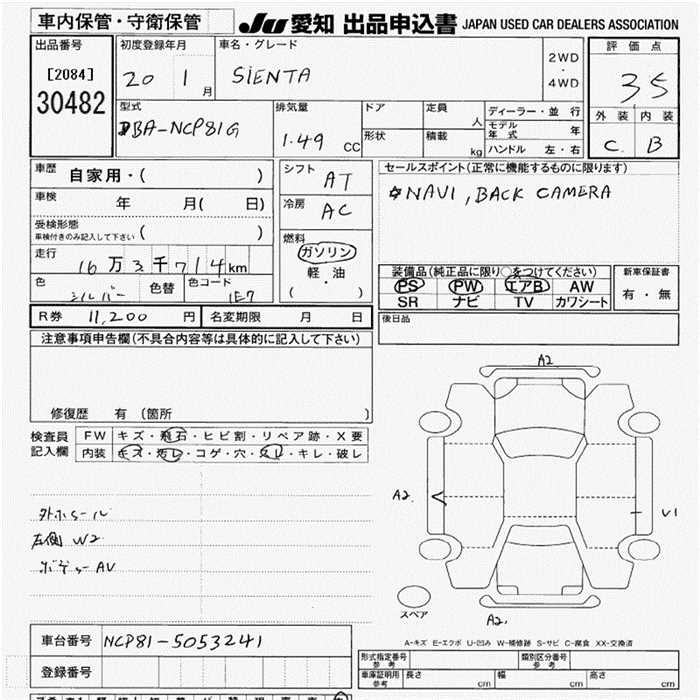 車内保管・守衛保管
JU 愛知 出品申込書 JAPAN USED CAR DEALERS ASSOCIATION
出品番号
[2084]
30482
初度登録年月
20 1 月
車名・グレード
SIENTA
2WD
・
4WD
評価点
35
外装 内装
C B
型式
DBA-NCP81G
排気量
1.49 CC
ドア
形状
定員 人
積載 kg
ディーラー・並行
モデル年式 年
ハンドル 左・右
車歴 自家用・( )
車検 年 月( 日)
受検形態
車検付きのみ記入して下さい ( )
走行 16万3千714km
色 シルバー 色替 色コード 1E7
シフト AT
冷房 AC
燃料
ガソリン
軽・油
( )
セールスポイント(正常に機能するものに限ります)
☆NAVI, BACK CAMERA
装備品(純正品に限り○をつけてください)
PS PW エアB AW
SR ナビ TV カワシート
新車保証書
有・無
R券 11,200 円 名変期限 月 日
後日品
注意事項申告欄(不具合内容等は具体的に記入して下さい)
修復歴 有 (箇所 )
検査員記入欄
FW キズ・飛石・ヒビ割・リペア跡・X要
内装 キズ・汚レ・コゲ・穴・スレ・キレ・破レ
左側 W2
A2
A2.
U1
A2.
スペア
A-キズ E-エクボ U-凹み W-補修跡 S-サビ C-腐食 XX-交換済
車台番号 NCP81-5053241
登録番号
形式指定番号 参考
類別区分番号 参考
車庫証明用 参考 長さ cm 幅 cm 高さ cm